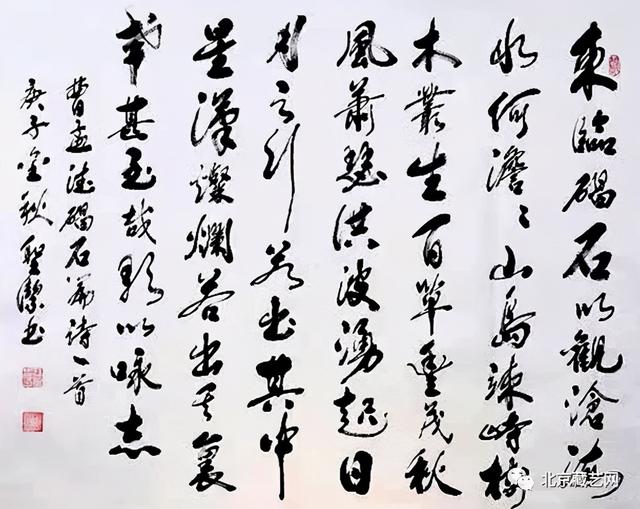 東臨碣石以觀滄海
水何澹〻山島竦峙樹
木叢生百草豐茂秋
風蕭瑟洪波湧起日
月之行若出其中
星漢燦爛若出其裏
幸甚至哉歌以咏志
曹孟德碣石篇詩一首
庚子金秋聖潔書
北京藏艺网